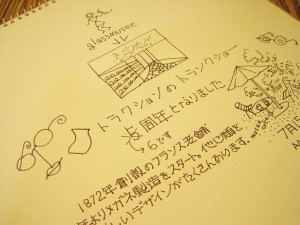 glassmusee
トラクションのトランクショー
5周年となりました
6です
1872年創設のフランス老舗
年よりメガネ製造をスタート。他に類を
しいデザインがたくさんあります。